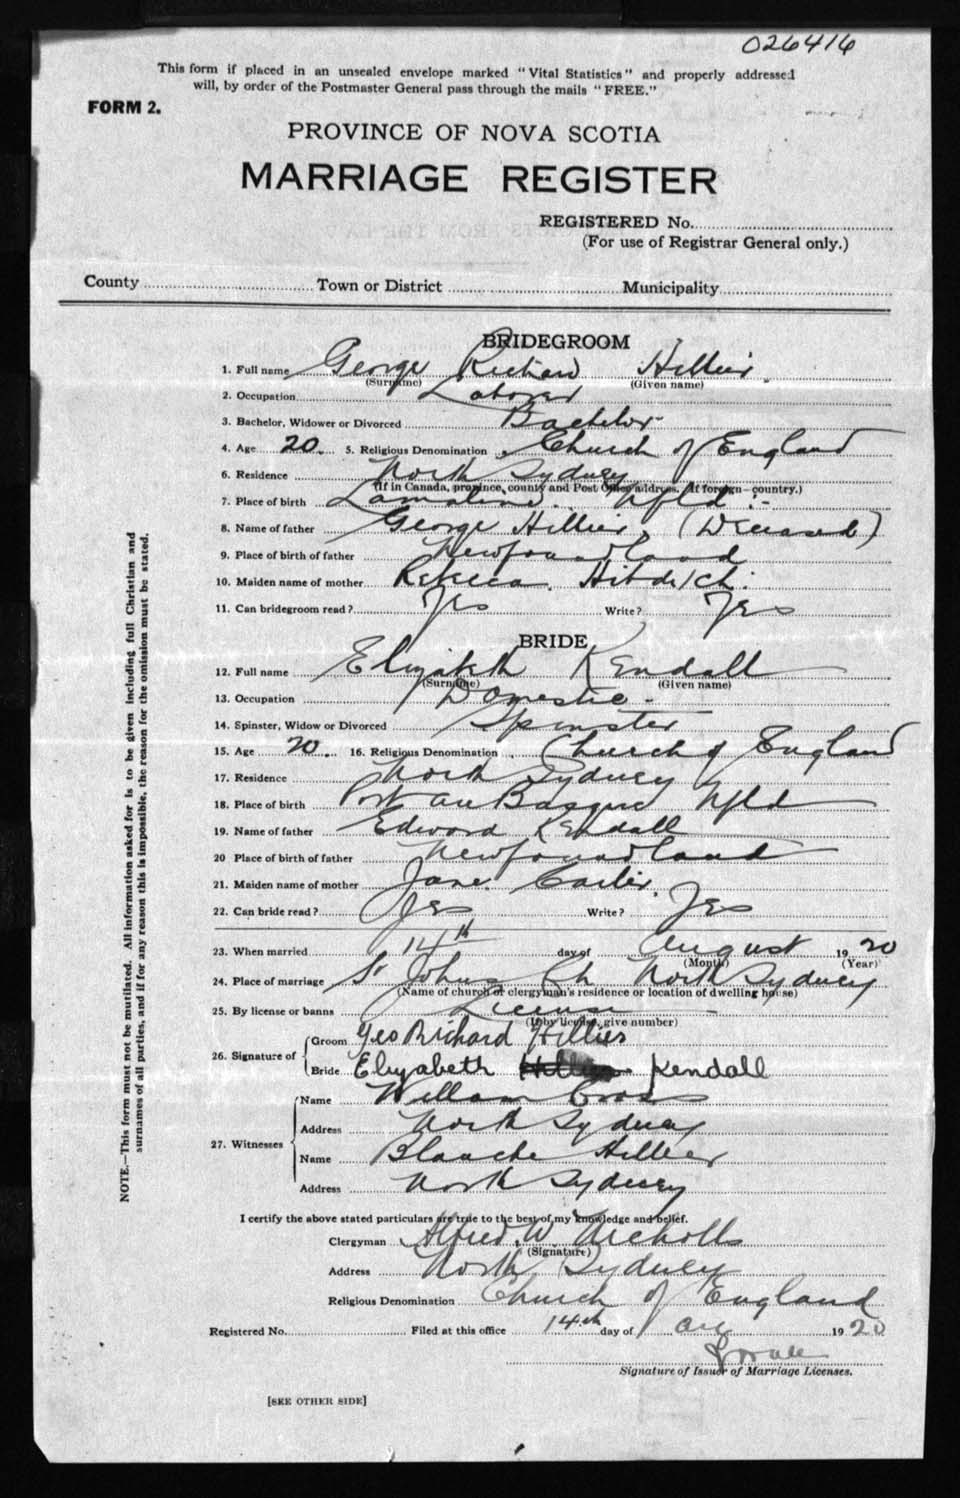 026416
This form if placed in an unsealed envelope marked "Vital Statistics" and properly addressed
will, by order of the Postmaster General pass through the mails "FREE."
FORM 2.
PROVINCE OF NOVA SCOTIA
MARRIAGE REGISTER
REGISTERED No.
(For use of Registrar General only.)
County Town or District Municipality
BRIDEGROOM
1. Full name George Richard Hillier
(Surname) (Given name)
2. Occupation Laborer
3. Bachelor, Widower or Divorced Bachelor
4. Age 20 5. Religious Denomination Church of England
6. Residence North Sydney
(If in Canada, province, county and Post Office address. If foreign—country.)
7. Place of birth Lamaline Nfld
8. Name of father George Hillier (Deceased)
9. Place of birth of father Newfoundland
10. Maiden name of mother Rebecca
11. Can bridegroom read? Yes Write? Yes
BRIDE
12. Full name Elizabeth Kendall
(Surname) (Given name)
13. Occupation Domestic
14. Spinster, Widow or Divorced Spinster
15. Age 20 16. Religious Denomination Church of England
17. Residence North Sydney
18. Place of birth Port au Basque Nfld
19. Name of father Edward Kendall
20 Place of birth of father Newfoundland
21. Maiden name of mother Jane
22. Can bride read? Yes Write? Yes
23. When married 14th day of August 1920
(Month) (Year)
24. Place of marriage St Johns Ch North Sydney
(Name of church or clergyman's residence or location of dwelling house)
25. By license or banns License
(If by license, give number)
26. Signature of Groom Geo Richard Hillier
Bride Elizabeth Hillier Kendall
27. Witnesses Name William Cross
Address North Sydney
Name Blanche Hillier
Address North Sydney
I certify the above stated particulars are true to the best of my knowledge and belief.
Clergyman Alfred W Nicholls
(Signature)
Address North Sydney
Religious Denomination Church of England
Registered No. Filed at this office 14th day of Aug 1920
Signature of Issuer of Marriage Licenses.
[SEE OTHER SIDE]
NOTE.—This form must not be mutilated. All information asked for is to be given including full Christian and
surnames of all parties, and if for any reason this is impossible, the reason for the omission must be stated.